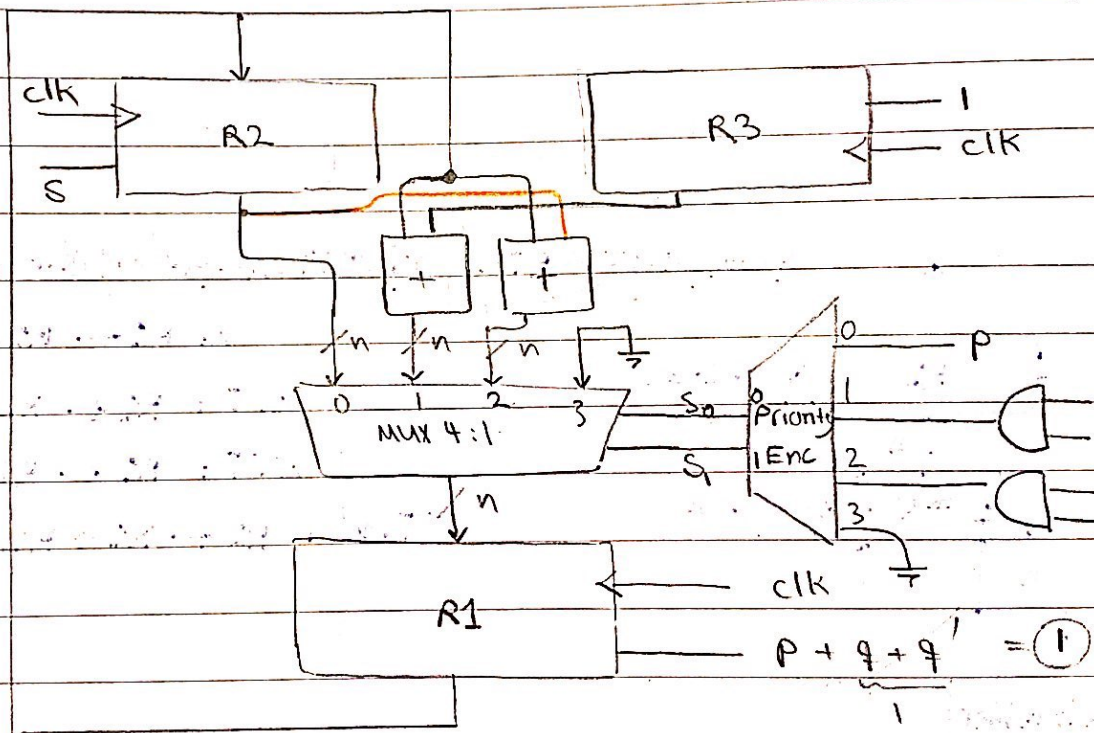 clk
R2
S
R3
1
clk
+
+
n
n
n
0 1 2 3
MUX 4:1
S0
S1
0
1
Priority
Enc
0
P
1
2
3
n
R1
clk
P + q + q' = 1
1